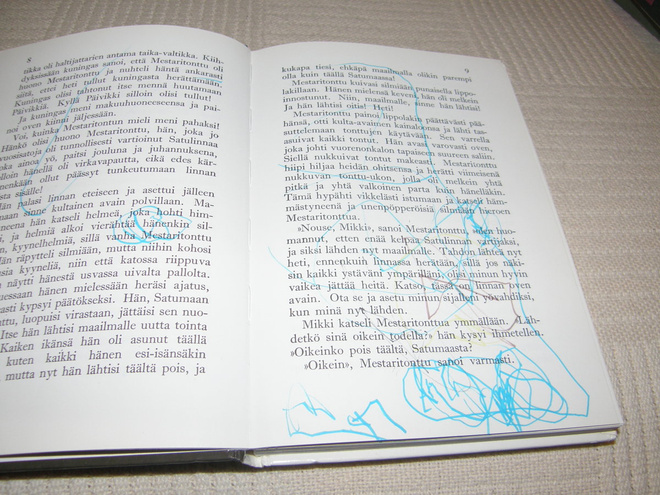 8
tikka oli haltijattarien antama taika-valtikka. Kiih-
dyksissään kuningas sanoi, että Mestaritonttu oli
huono Mestaritonttu ja nuhteli häntä ankarasti
siitä, ettei hetí tullut kuningasta herättämään.
Kuningas olisi tahtonut itse mennä huutamaan
Päivikkiä. Kyllä Päivikki silloin olisi tullut!
Ja kuningas meni makuuhuoneeseensa ja pai-
noi oven kiinni jäljessään.
Voi, kuinka Mestaritontun mieli meni pahaksi!
Hänkö oli huono Mestaritonttu, hän, joka jo
vuosisatoja oli tunnollisesti vartioinut Satulinnaa
ka ainoa yö, paitsi jouluna ja juhannuksena,
olloin hänellä oli virkavapautta, eikä edes kär-
enkään ollut päässyt tunkeutumaan linnan
sta sisälle!
palasi linnan eteiseen ja asettui jälleen
inne kultainen avain polvillaan. Ma-
neena hän katseli helmeä, joka hohti him-
ja helmiä alkoi vierähtää hänenkin sil-
kyynelhelmiä, sillä vanha Mestaritonttu
räpytteli silmiään, mutta niihin kohosi
kyyneliä, niin että katossa riippuva
näytti hänestä usvassa uivalta pallolta.
essaan hänen mielessään heräsi ajatus,
asti kypsyi päätökseksi. Hän, Satumaan
ttu, luopuisi virastaan, jättäisi sen nuo-
Itse hän lähtisi maailmalle uutta tointa
Kaiken ikänsä hän oli asunut täällä
kuten kaikki hänen esi-isänsäkin
mutta nyt hän lähtisi täältä pois, ja
9
kukapa tiesi, ehkäpä maailmalla olikin parempi
olla kuin täällä Satumaassa!
Mestaritonttu kuivasi silmiään punaisella lippo-
lakillaan. Hänen mielensä keveni, hän oli melkein
innostunut. Niin, maailmalle, sinne hän lähtisi!
Ja hän lähtisi oitis! Heti!
Mestaritonttu painoi lippolakin päätävästi pää-
hänsä, otti kulta-avaimen kainaloonsa ja lähti tas-
suttelemaan tonttujen käytävään. Sen varrella
asuivat kaikki tontut. Hän avasi varovasti oven,
joka johti vuoronkavalon tapaiseen suureen saliin.
Siellä nukkuivat tontut makeasti. Mestaritonttu
hiipi hiljaa heidän ohitsensa ja herätti viimeisenä
nukkuvan tonttu-ukon, jolla oli melkein yhtä
pitkä ja yhtä valkoinen parta kuin hänelläkin.
Tämä hypähti vikkelästi istumaan ja katseli häm-
mästyneenä ja unenpöpperöisin silmin vanhaa
Mestaritonttua.
»Nouse, Mikki», sanoi Mestaritonttu, »olen huo-
mannut, etten enää kelpaa Satulinnan vartijaksi,
ja siksi lähden nyt maailmalle. Tahdon lähteä nyt
heti, ennenkuin linnassa herätään, sillä jos näki-
sin kaikki ystäväni ympärilläni, olisi minun hyvin
vaikea jättää heitä. Katso, tässä on linnan oven
avain. Ota se ja asetu minun sijalleni yövahdiksi,
kun minä nyt lähden.
Mikki katseli Mestaritonttua ymmällään. »Läh-
detkö sinä oikein todella?» hän kysyi ihmetellen.
»Oikeinko pois täältä, Satumaasta?»
»Oikein», Mestaritonttu sanoi varmasti.